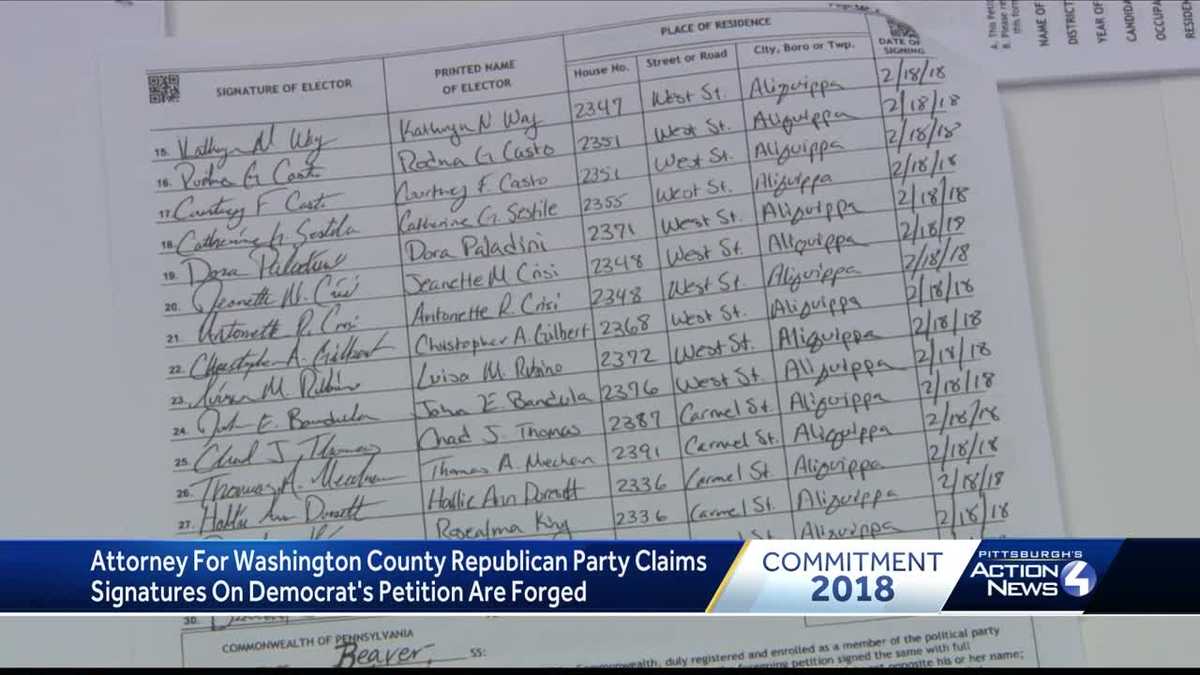 PLACE OF RESIDENCE
SIGNATURE OF ELECTOR PRINTED NAME OF ELECTOR House No. Street or Road City, Boro or Twp. DATE OF SIGNING
15. Kathryn N Way Kathryn N Way 2347 West St. Aliquippa 2/18/18
16. Rodna G Casto Rodna G Casto 2351 West St. Aliquippa 2/18/18
17. Courtney F Casto Courtney F. Casto 2351 West St. Aliquippa 2/18/18
18. Catherine G. Sestile Catherine G. Sestile 2355 West St. Aliquippa 2/18/18
19. Dora Paladini Dora Paladini 2371 West St. Aliquippa 2/18/18
20. Jeanette M. Crisi Jeanette M Crisi 2348 West St. Aliquippa 2/18/18
21. Antonette R. Crisi Antonette R. Crisi 2348 West St. Aliquippa 2/18/18
22. Christopher A. Gilbert Christopher A. Gilbert 2368 West St. Aliquippa 2/18/18
23. Luisa M. Rubino Luisa M. Rubino 2372 West St. Aliquippa 2/18/18
24. John E. Bandula John E. Bandula 2376 West St. Aliquippa 2/18/18
25. Chad J. Thomas Chad J. Thomas 2387 Carmel St. Aliquippa 2/18/18
26. Thomas A. Thomas A. 2391 Carmel St. Aliquippa 2/18/18
27. Hallie Ann Hallie Ann 2336 Carmel St. Aliquippa 2/18/18
Rosealma King 2336 Carmel St. Aliquippa 2/18/18
St. Aliquippa 2/18/18
Attorney For Washington County Republican Party Claims
Signatures On Democrat's Petition Are Forged
COMMITMENT
2018
PITTSBURGH'S
ACTION
NEWS 4
30.
COMMONWEALTH OF PENNSYLVANIA
Beaver, SS:
duly registered and enrolled as a member of the political party
petition signed the same with full
opposite his or her name;
A. This Peti
B. Please re
this form
NAME OF
DISTRICT
YEAR OF
CANDIDA
OCCUPA
RESIDEN